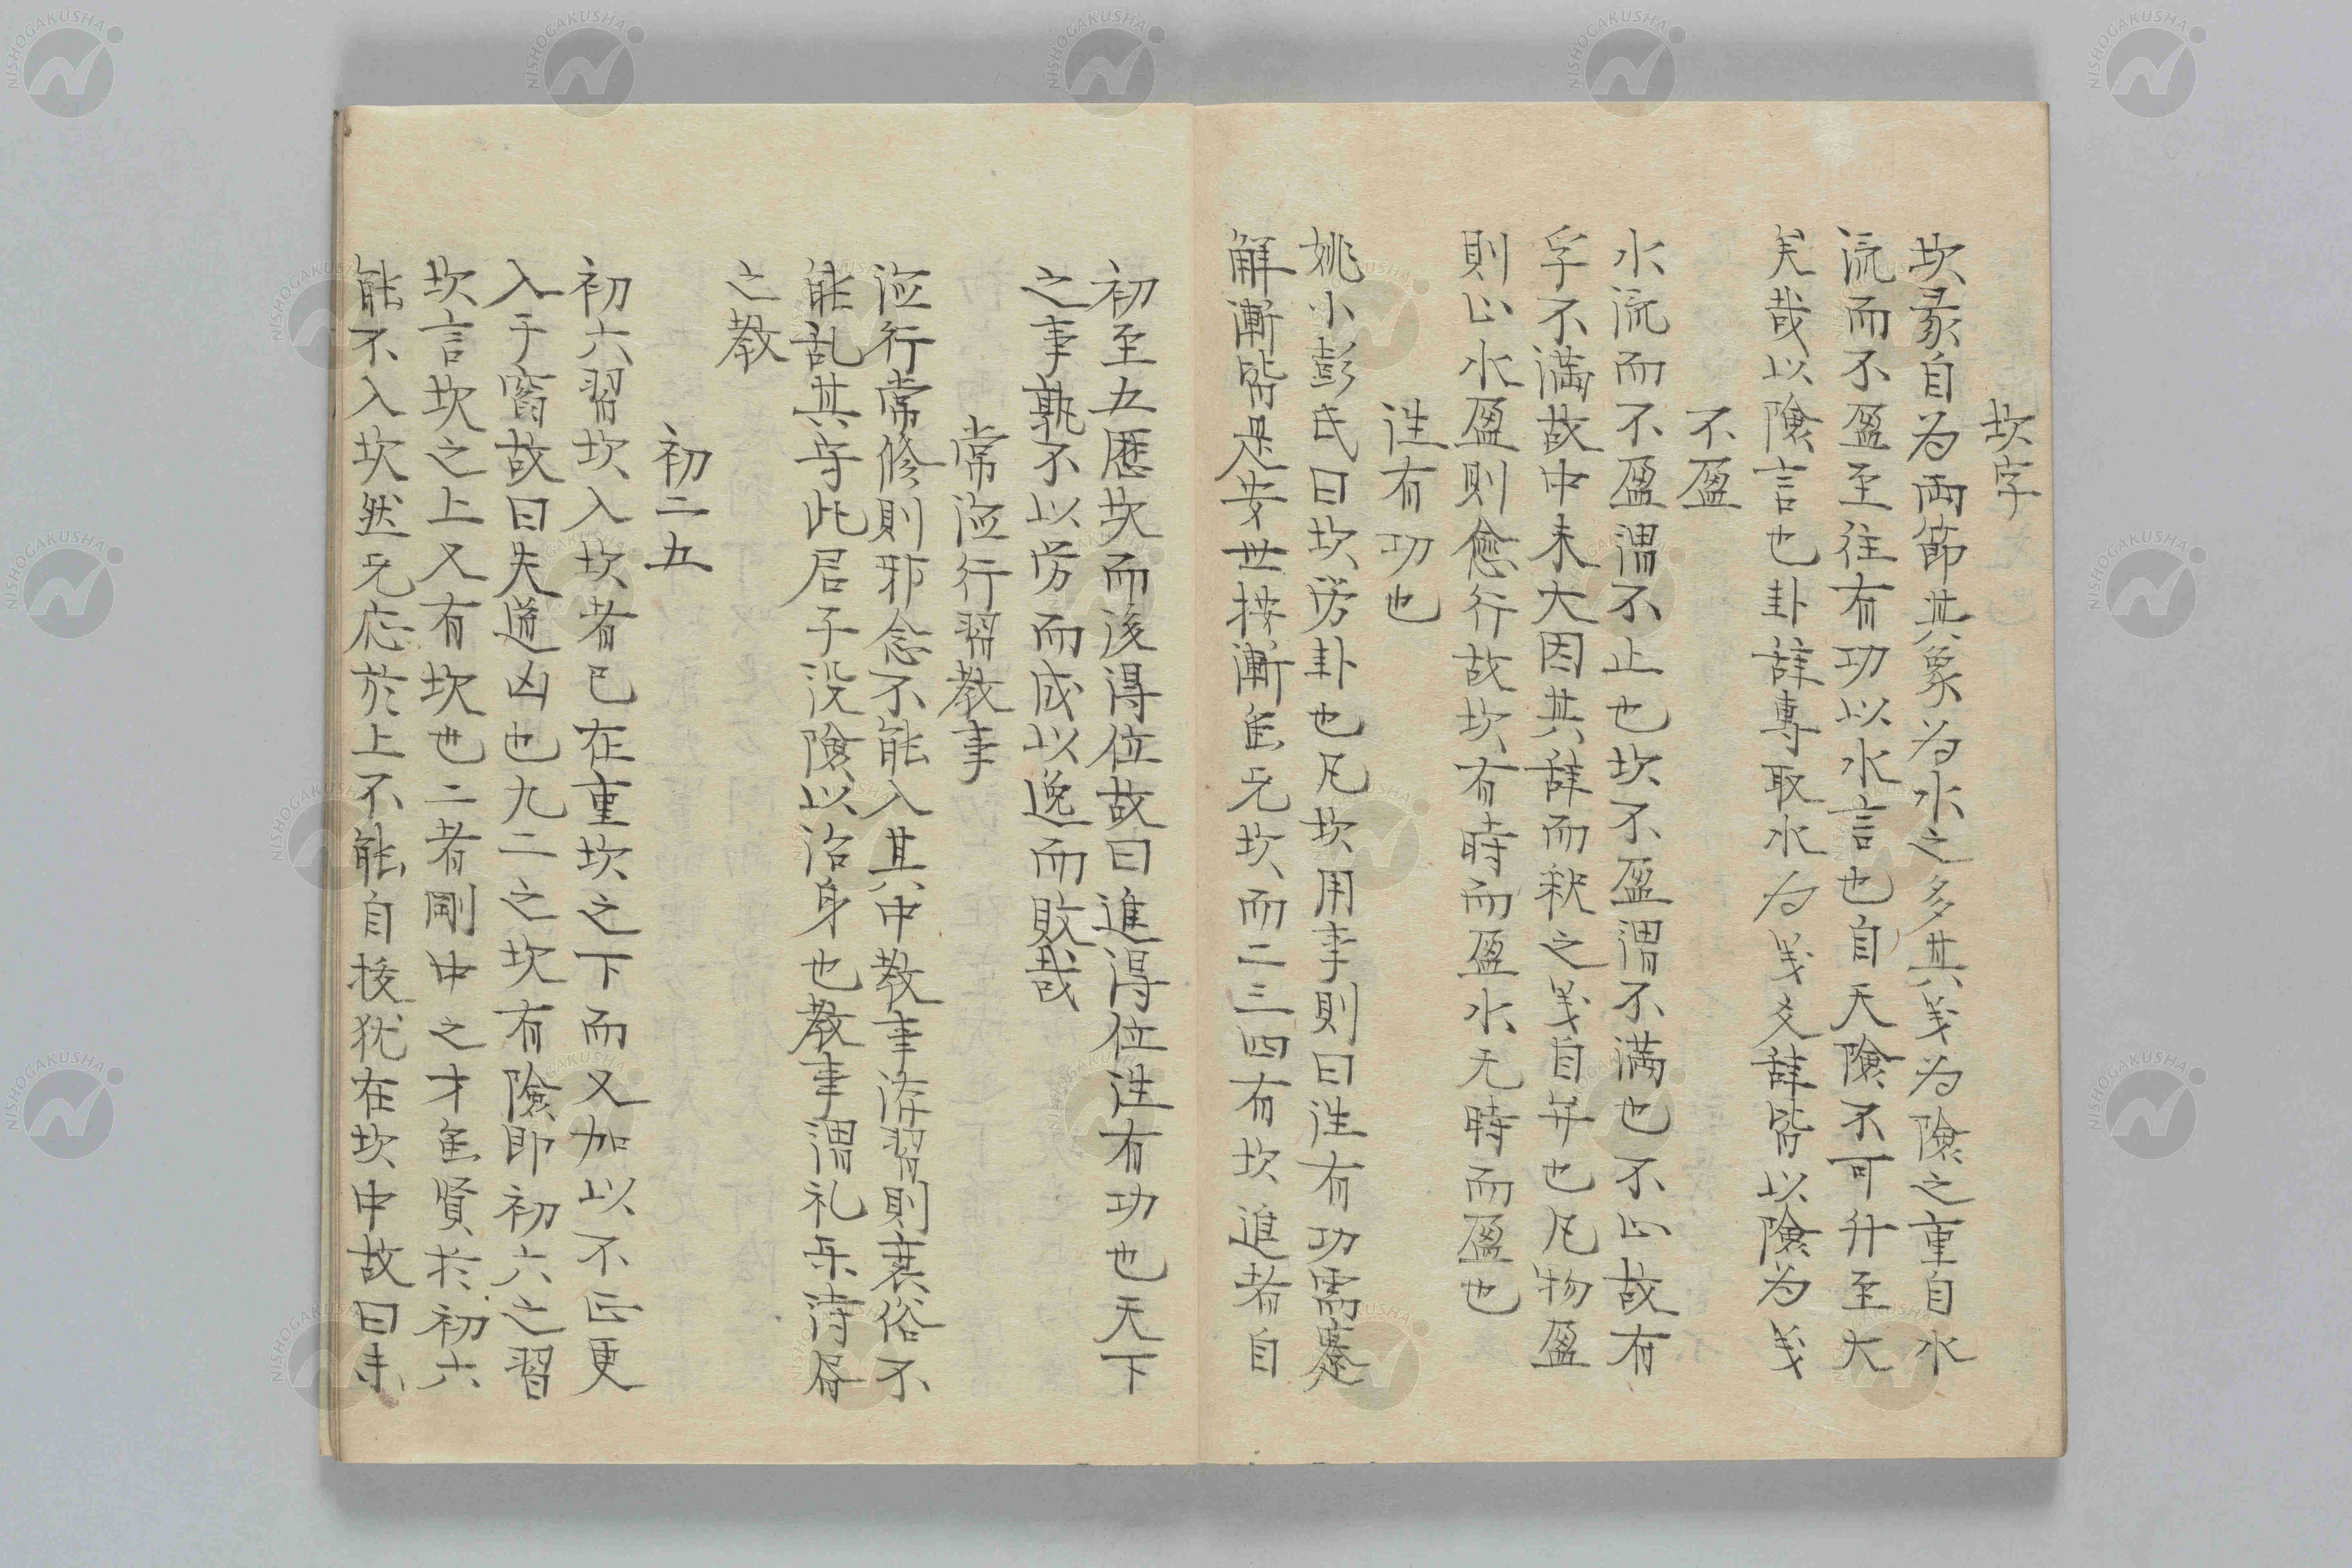 坎字
坎彖自为兩節其象为水之多其义为險之重自水
流而不盈至往有功以水言也自天險不可升至大
矣哉以險言也卦辞專取水为义爻辞皆以險为义
不盈
水流而不盈謂不止也坎不盈謂不满也不止故有
孚不满故中未大因其辞而釈之义自并也凡物盈
則止水盈則愈行故坎有時而盈水无時而盈也
往有功也
姚小彭氏曰坎労卦也凡坎用事則曰往有功需蹇
解漸皆是安世按漸虽无坎而二三四有坎進者自
初至五歴坎而後得位故曰進得位往有功也天下
之事孰不以労而成以逸而敗哉
常德行習教事
德行常修則邪念不能入其中教事洊習則衰俗不
能乱其守此君子没險以治身也教事謂礼乐詩書
之教
初二五
初六習坎入坎者已在重坎之下而又加以不正更
入于窞故曰失道凶也九二之坎有險即初六之習
坎言坎之上又有坎也二者剛中之才虽賢於初六
能不入坎然无応於上不能自拔犹在坎中故曰未
NISHOGAKUSHA